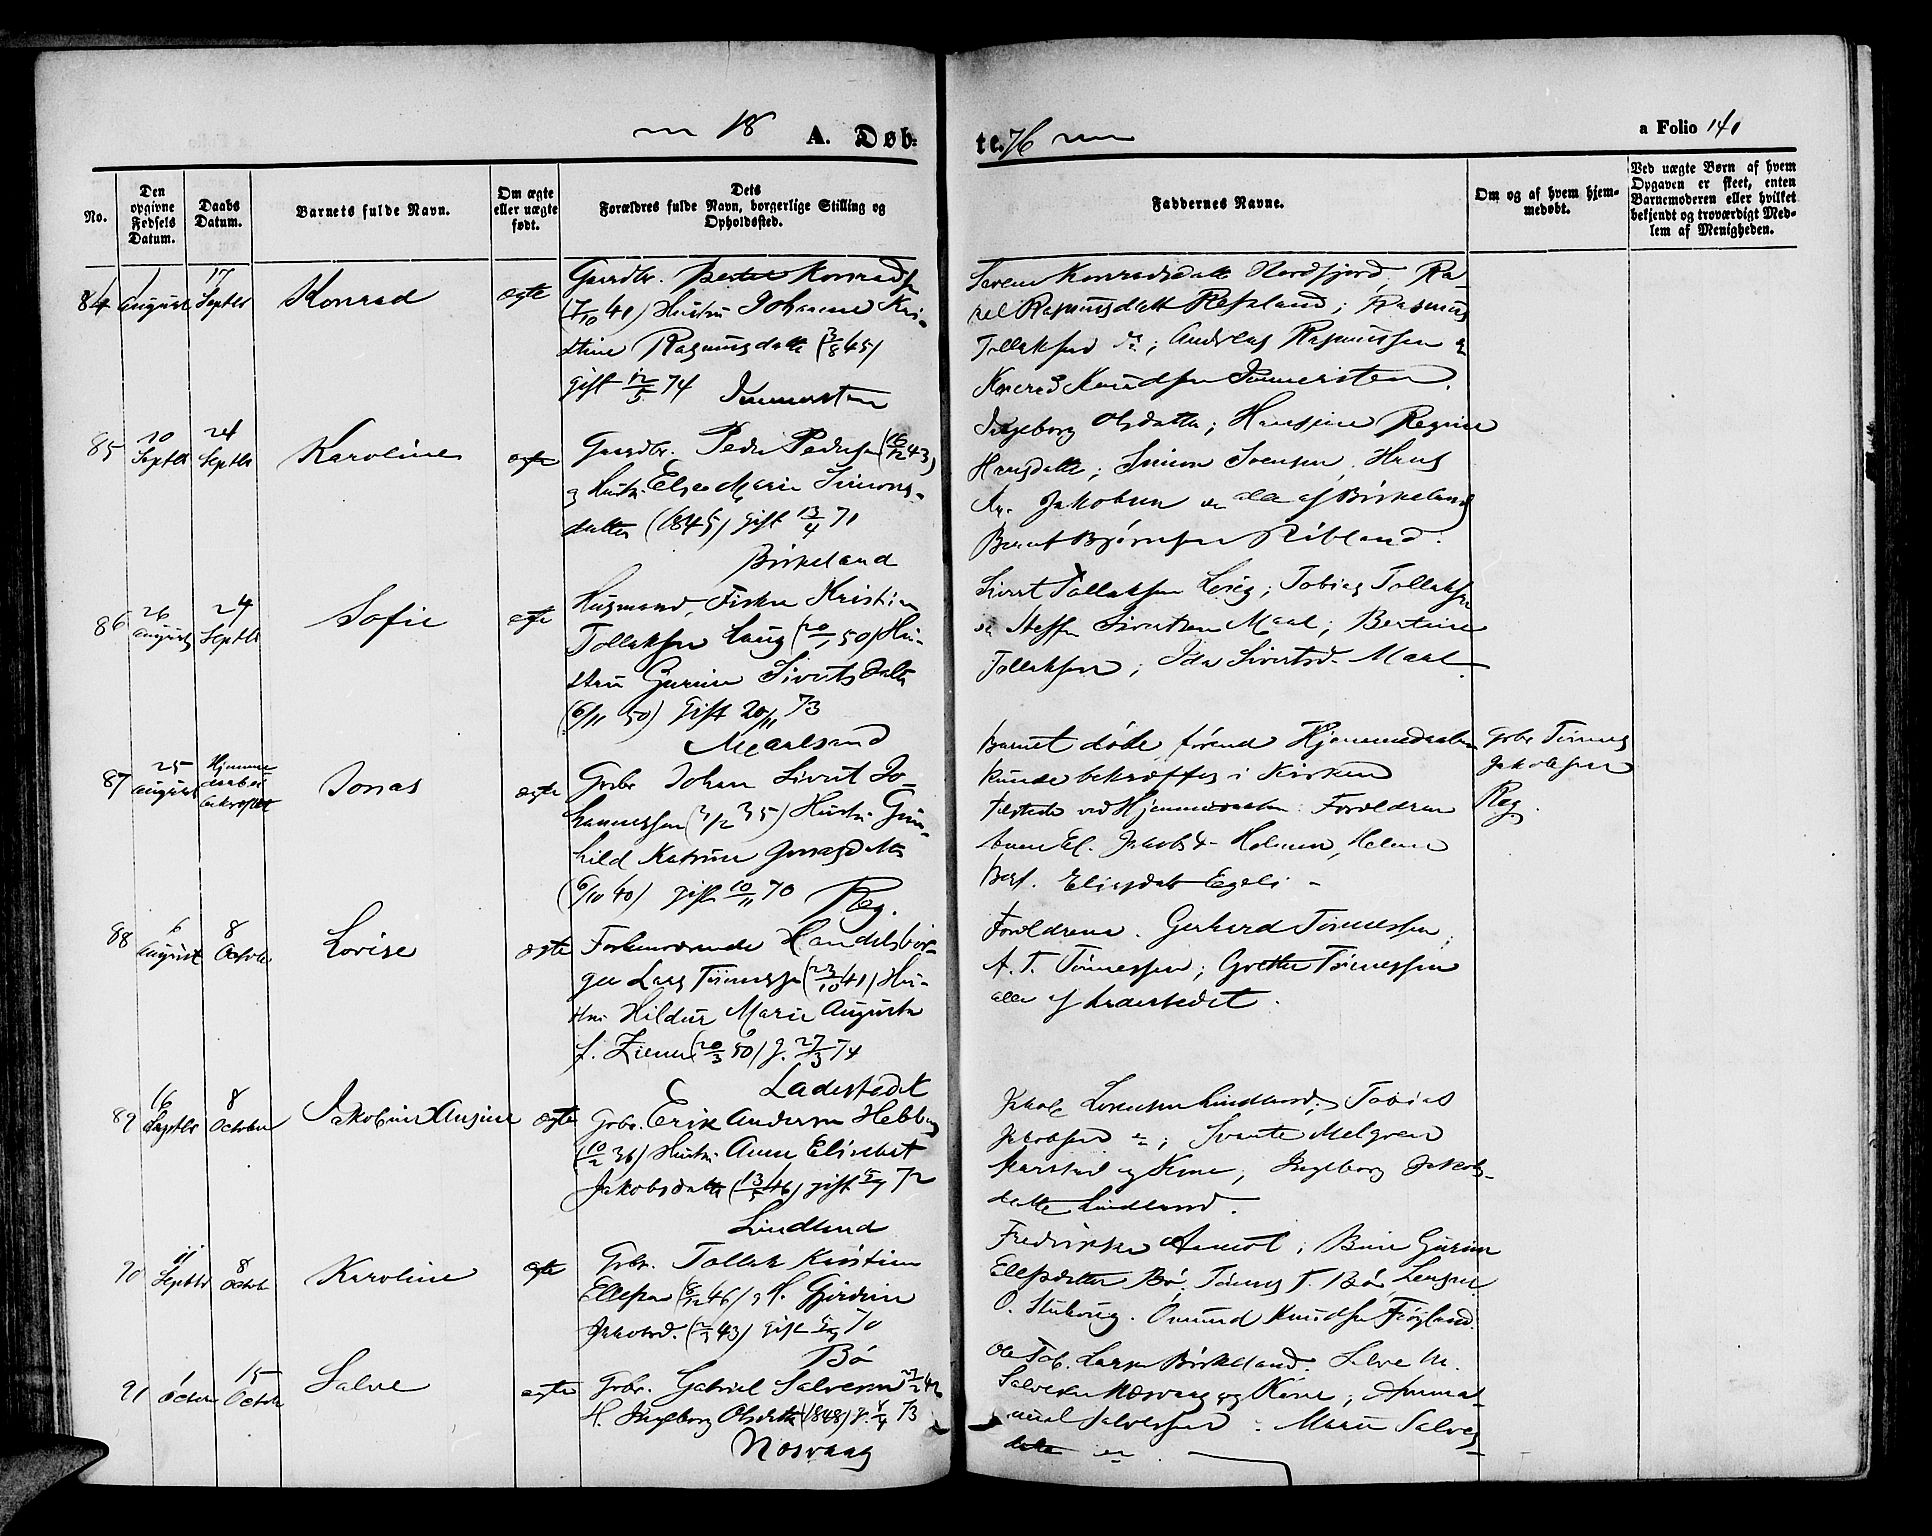 18 A. Døb-
te. 76
a Folio 141
No.
Den opgivne Fødsels Datum.
Daabs Datum.
Barnets fulde Navn.
Om ægte eller uægte født.
Dets
Forældres fulde Navn, borgerlige Stilling og
Opholdssted.
Faddernes Navne.
Om og af hvem hjem-
medøbt.
Ved uægte Børn af hvem
Opgaven er skeet, enten
Barnemoderen eller hvilket
bekjendt og troværdigt Med-
lem af Menigheden.
84 1 August 17 Septbr Konrad ægte
Gaardbr. Peder Konradsen
(7/10 41) Hustru Johanne Kri-
stine Rasmusdatter (3/8 45)
gift 12/5 74
Immersten
Konradsdatter Nordfjord, Ra-
kel Rasmusdatt Refsland; Rasmus
Tollaksen; Andreas Rasmussen
Konrad Knudsen Immersten.
85 20 Septbr 24 Septbr Karoline ægte
Gaardbr. Peder Pedersen (16/12 43)
og Hustr. Elen Marie Simons-
datter (1845) gift 13/4 71
Birkeland
Ingeborg Olsdatter; Hansine Regine
Hansdatter; Simon Svensen, Hans
Jakobsen alle af Birkeland
Bernt Bjørnsen Ribland.
86 26 August 24 Septbr Sofie ægte
Husmand, Fisker Kristian
Tollaksen Haug (20/1 50) Hu-
stru Gurine Sivertsdatter
(6/11 50) gift 20/11 73
Maalsand
Sivert Tollaksen; Tobias Tollaksen
Steffen Sivertsen Maal; Bertine
Tollaksen; Ida Sivertsd. Maal
87 25 August Hjemmedaaben bekræftet Jonas ægte
Grbr Johan Sivert Jo-
hannessen (3/12 35) Hustr. Gun-
hild Katrine Jonasdatter
(6/10 40) gift 10/11 70
Reg.
Barnet døde førend Hjemmedaaben
kunde bekræftes i Kirken
tilstede ved Hjemmedaaben: Forældrene
Anne El. Jakobsd. Holmen, Helene
Berf. Eliasdatt Egeli -
Grbr Tønnes
Jakobsen
Reg.
88 6 August 8 October Lovise ægte
Forhenværende Handelsbor-
ger Lars Tønnessen (23/10 41) Hu-
stru Hildur Marie Augusta
f. Ziener (20/3 50) g. 27/3 74
Ladestedet
Forældrene. Gerhard Tønnessen;
A. T. Tønnessen; Grethe Tønnessen
alle af Ladestedet.
89 16 Septbr 8 October Jakobine Ansine ægte
Grbr. Erik Andersen
(10/2 36) Hustr. Anne Elisebet
Jakobsdatter gift 72
Lindland
Jakob Lorensen Lindland; Tobias
Jakobsen; Svante Melgren
Karstad og Kone; Ingeborg Jakobs-
datter Lindland.
90 11 Septbr 8 Octob Karoline ægte
Grbr. Tollak Kristian
Ellefsen (8/12 46) og H. Gjørdine
Jakobsd. (43) gift 70
Bø
Fredrikke Aamot; Gurine
Ellefsdatter Bø, Tønnes T. Bø,
O. Stuhoug. Omund Knudsen Frøyland.
91 1 Octbr 15 Octbr Salve ægte
Grbr. Gabriel Salvesen
H. Ingeborg Olsdatter (1848) g. 73
Nosvaag
Ole Tob. Larsen Birkeland. Salve M.
Salvesen Nosvaag og Kone;
Salvesen; Marie Salves-
datter